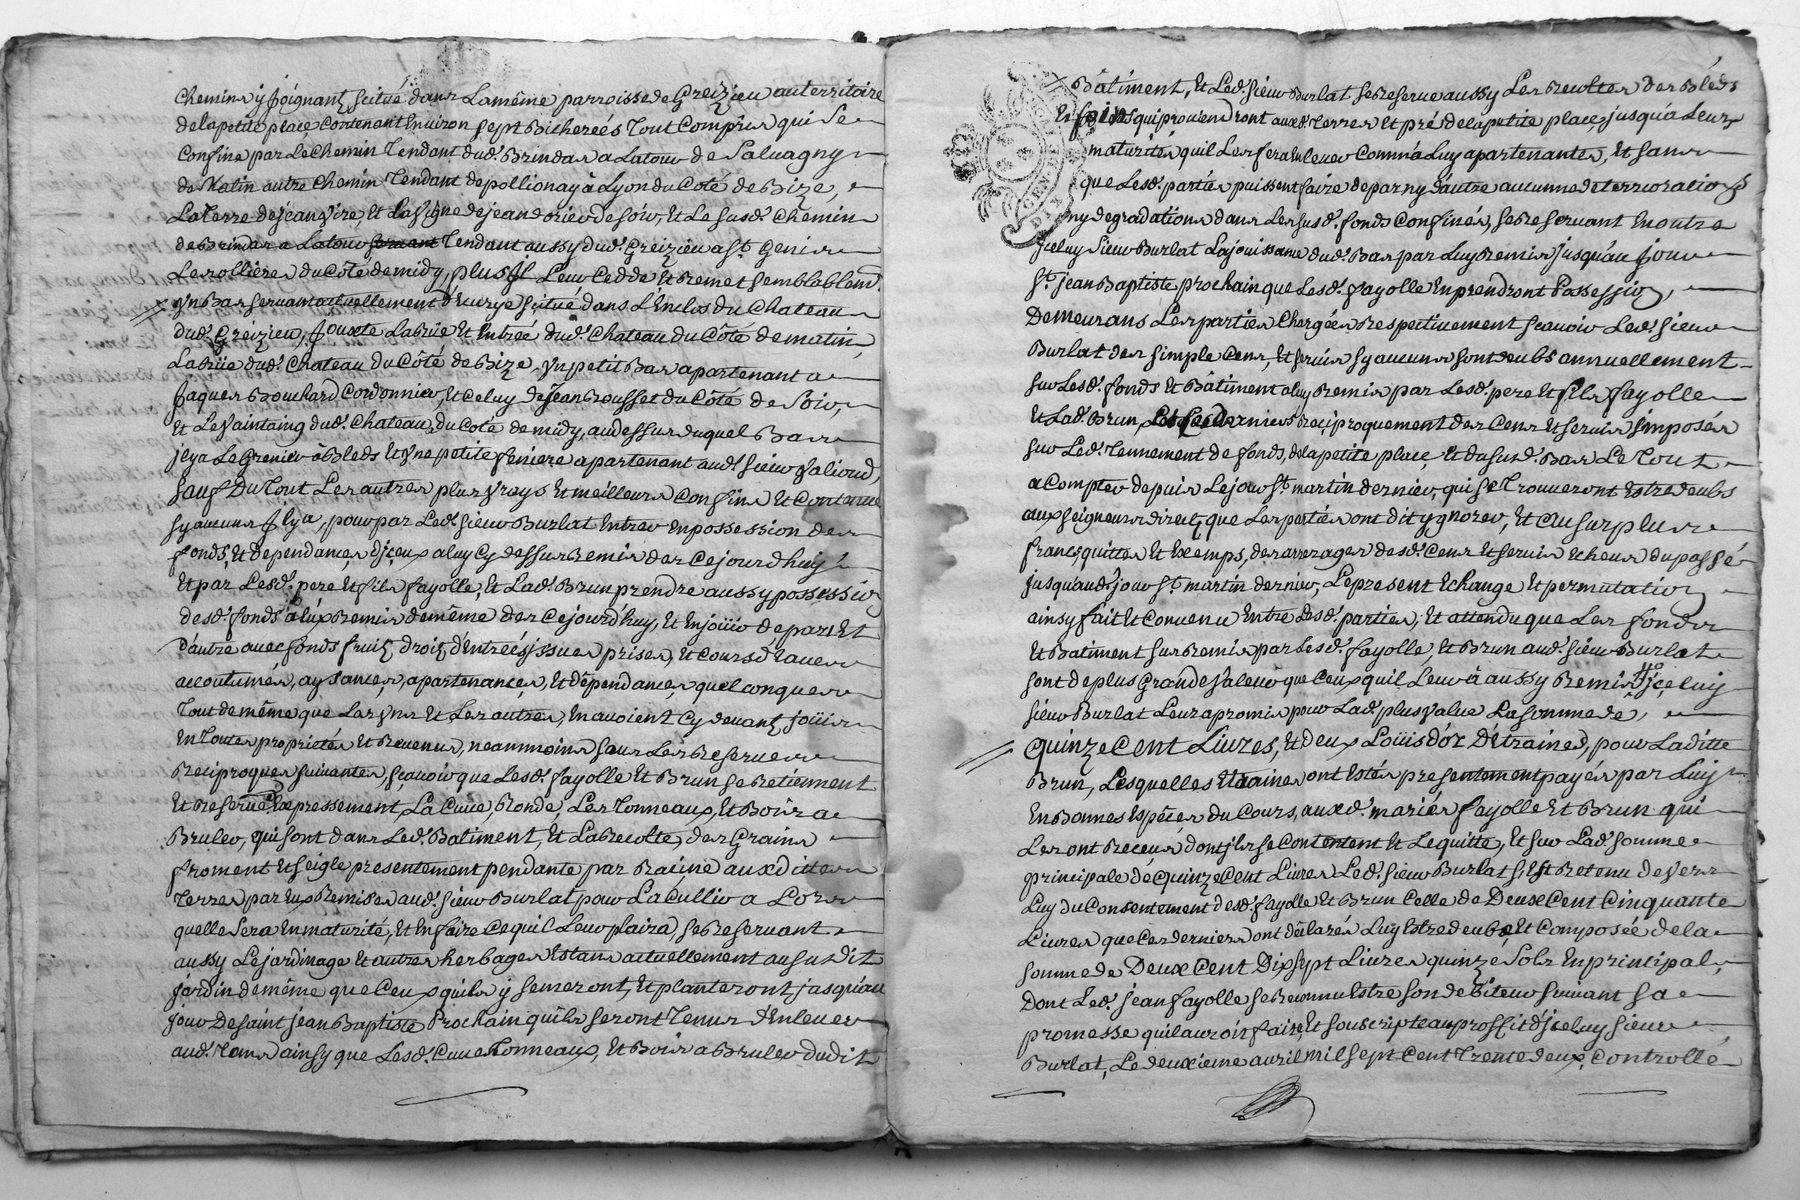 chemins y joignant, scitué dans La même parroisse de Greizieu au territoire
de la petite place contenant Environ sept Bicherées Tout Compris qui se
Confine par Le chemin Tendant dud. Brindas a Latour de Salvagny
de Matin autre chemin Tendant de pollionay à Lyon du Coté de Bize,
La Terre de jean vire, Et La vigne de jean dorier de soir, Et Le susd. chemin
de Brindas a Latour Tendant aussy dud. Greizieu a st. Genis
Lerollières du Côté de midy, plus Il Leur Cedde Et Remet semblablemt.
yn Bas servant actuellement d'Ecurye scitué dans L'Enclos du Chateau
dud. Greizieu, Jouxte La Rüe Et Entrée dud. Chateau du Côté de matin,
La Rüe dud. Chateau du Côté de Bize, yn petit Bas apartenant a
Jaques Bouchard Cordonnier, Et Celuy de Jean Rousset du Côté de Soir,
Et Le vaintaing dud. Chateau, du Coté de midy, au dessus duquel Bas
jl ya Le Grenier à Bleds Et yne petite feniere apartenant aud. sieur valioud,
sauf Du Tout Les autres plus vrays Et meilleurs Confins Et Contenue
sy aucuns Il y a, pour par Led. sieur Burlat Entrer En possession des
fonds, Et dependances d'jceux a luy Cy dessus Remis des Cejourdhuy
Et par Lesd. pere Et fils fayolle, Et Lad. Brun prendre aussy possession
desd. fonds à Eux Remis de même des Cejourd'huy, Et En joüir de part Et
d'autre avec fonds fruits droits d'Entrées jssues prises, Et Cours d'Eaues
accoutumés, aysances, apartenances, Et dépendances quelconques
Tout de même que Les yns Et Les autres, En avoient Cy devant joüis
En Toutes proprietés Et Revenus, neanmoins sous Les Reserves
Reciproques suivantes, sçavoir que Lesd. fayolle Et Brun se Retiennent
Et Reservent Expressement La Cuve, Ronde, Les Tonneaux, Et Bois a
Bruler, qui sont dans Led. Batiment, Et La Recolte des Grains
froment Et seigle presentement pendante par Racine auxdittes
Terres par Eux Remises aud. sieur Burlat pour La Cuillir a Lors
quelle Sera En maturité, Et En faire Ce quil Leur plaira, se Reservant
aussy Le jardinage Et autres herbages Estans actuellement au susdit
jardin de même que Ceux quils y semeront, Et planteront jusqu'au
jour De saint jean Baptiste Prochain quils seront Tenus d'Enlever
aud. Tems ainsy que Lesd. Cuve Tonneaux, Et Bois a Bruler dudit
Bâtiment, Et Led. sieur Burlat se Reserve aussy Les Recoltes des Bleds
Et foins qui proviendront auxd. Terres Et pré de la petite place, jusqu'a Leurs
maturités quil Les fera Enlever Comme à Luy apartenantes, Et sans
que Lesd. parties puissent faire de par ny d'autre aucunne deterrioration
ny degradations dans Les susd. fonds Confinés, se Reservant En outre
jceluy Sieur Burlat La jouissance dud. Bas par Luy Remis jusqu'au jour
st. jean Baptiste prochain que Lesd. fayolle En prendront Possession,
Demeurans Les parties Chargées Respectivement scavoir Led. sieur
Burlat des simple Cens, Et servis sy aucuns sont deubs annuellement
sur Lesd. fonds Et Bâtiment a luy Remis par Lesd. pere Et fils fayolle
Et Lad. Brun, Et Ces derniers Reciproquement des Cens Et servis jmposés
sur Led. Tennement de fonds, de la petite place, Et du susd. Bas Le Tout
a Compter depuis Le jour st. martin dernier, qui se Trouveront Estre deubs
aux seigneurs direct, que Les parties ont dit ygnorer, Et Au surplus
francs, quittes Et Exemps, des arrerages desd. Cens Et servis Echeus du passé
jusqu'aud. jour st. martin dernier, Le present Echange Et permutation
ainsy fait Et Convenu Entre Lesd. parties, Et attendu que Les fonds
Et Batiment sus Remis par Lesd. fayolle, Et Brun aud. sieur Burlat
sont de plus Grande valeur que Ceux quil Leur à aussy Remis, jceluy
sieur Burlat Leur a promis pour Lad. plus value La somme de,
Quinze Cent Livres, Et deux Loüis d'or D'Etraines, pour Laditte
Brun, Lesquelles Etraines ont Estés presentement payés par Luy
En Bonnes Especes du Cours, auxd. mariés fayolle Et Brun qui
Les ont Receus dont jls se Contentent Et Le quitte, Et sur Lad. somme
principale de Quinze Cent Livres Led. sieur Burlat s'Est Retenu devers
Luy du Consentement desd. fayolle Et Brun Celle de Deux Cent Cinquante
Livres que Ces derniers ont déclarés Luy Estre deube, Et Composée de la
somme de Deux Cent Dix sept Livres quinze Sols En principal,
Dont Led. jean fayolle se Reconnu Estre son debiteur suivant sa
promesse qu'il auroit faite, Et souscripte au proffit d'jceluy sieur
Burlat, Le deuxieme avril mil sept Cent Trente deux, Controllé